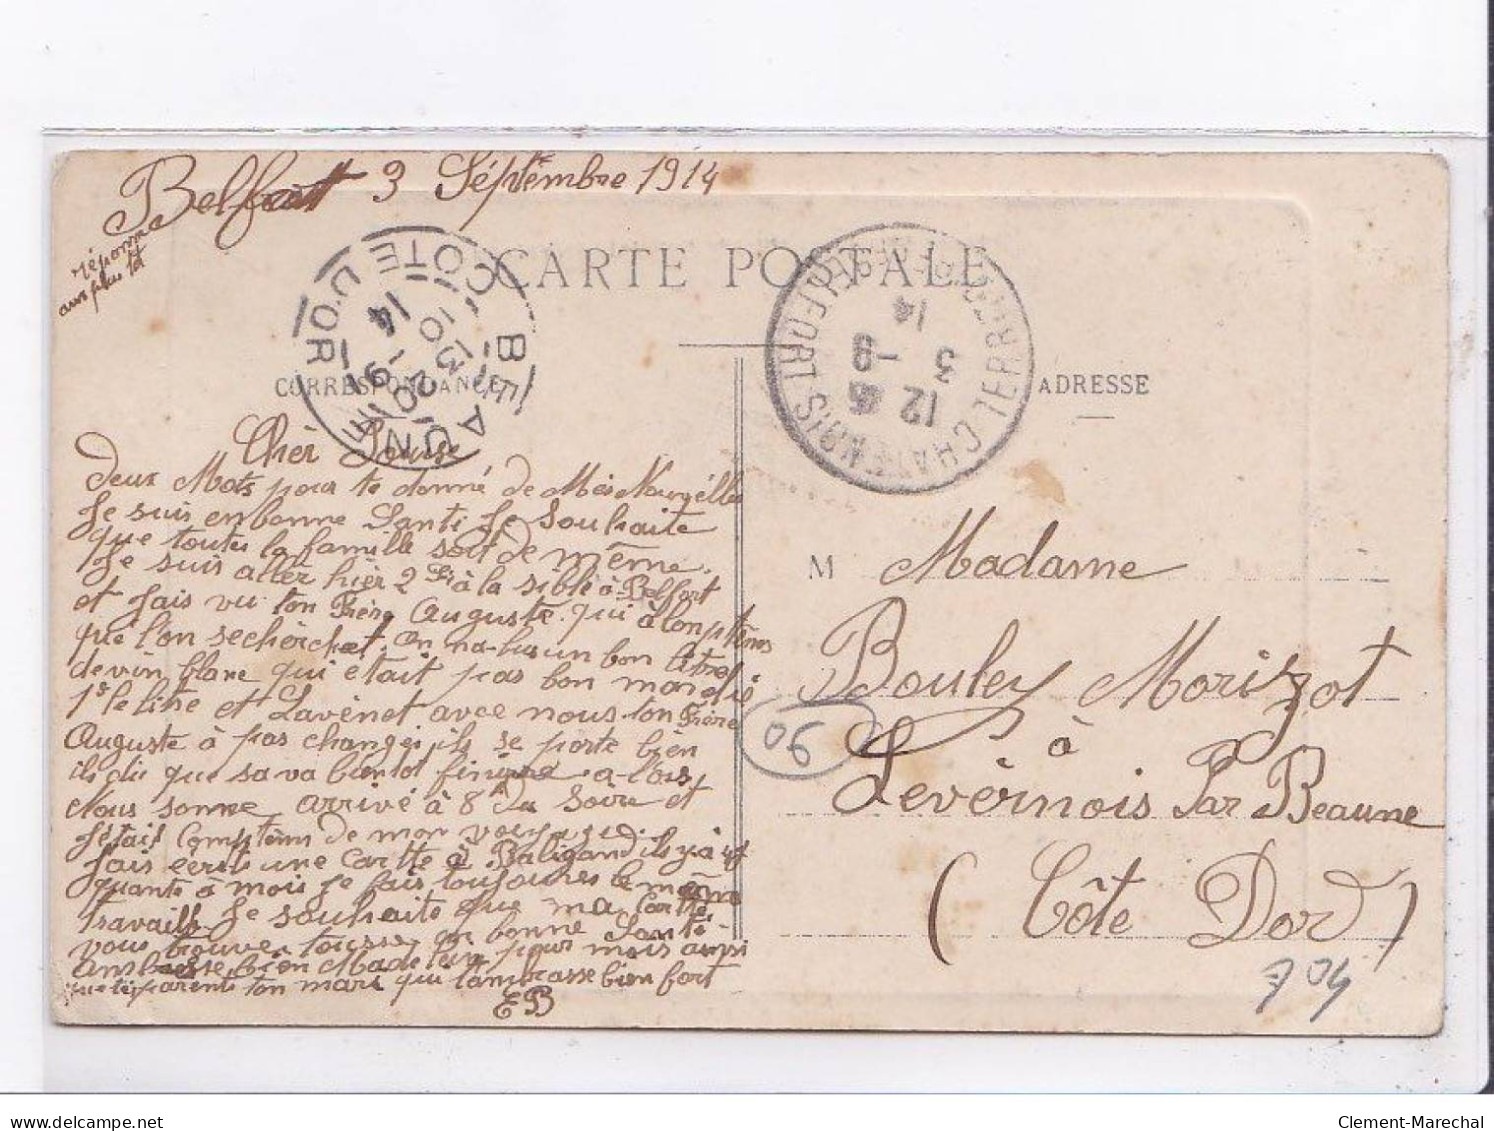 Belfort 3 Séptembre 1914
réponse
aus plus tot
CARTE POSTALE
COTE D'OR
BEAUNE
13 10
20 - 9
14
CHATENOIS TERR. DE BELFORT
12 45
3 - 9
14
CORRESPONDANCE
ADRESSE
Chèr Louise
deux Mots pour te donné de Mes Nouvélles
Je suis en bonne Santé Je Souhaite
que toutes la famille soit de même.
Je suis aller hièr 2 à la siblé à Belfort
et fais vu ton Frère Auguste qui à lonptêmps
què l'on se chèrchat. on na-bus un bon litre
de vin blanc qui était pas bon marché
1f le litre et Lavènet avec nous ton Frère
Auguste à pas changei ils se porte bièn
ils dit que sa va bientot finire a-lors,
Nous somme arrivé à 8h du Soire et
Jétait Comptêm de mon voiyage.
fais écrit une cartte à Baligand ils y à
quante à mois Je fais toujoures le même
travaille Je souhaite que ma Cartte
vous trouve tousse en bonne Santé
bièn pour mois ainsi
que tes parents ton mari qui t'ambrasse bien fort
EB
M Madame
Bouley Morizot
à
Levèrnois Par Beaune
( Côte Dor )
06
704
delcampe.net
Clement-Marechal